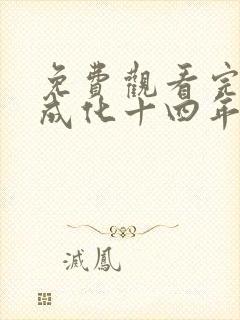 免費觀看完
成化十四年
滅鳳